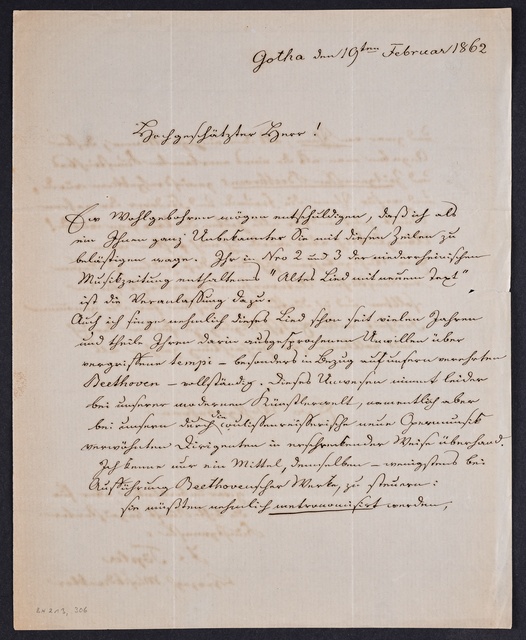 Gotha den 19ten Februar 1862
Hochgeschätzter Herr!
Ew Wohlgeboren mögen entschuldigen, daß ich als
ein Ihnen ganz Unbekannter Sie mit diesen Zeilen zu
belästigen wage. Ihr in Nro 2 und 3 der niederrheinischen
Musikzeitung enthaltenes "Altes Lied mit neuem Text"
ist die Veranlassung dazu.
Auch ich singe nehmlich dieses Lied schon seit vielen Jahren
und theile Ihren darin ausgesprochenen Unwillen über
vergriffene tempi – besonders in Bezug auf unsern verehrten
Beethoven – vollständig. Dieses Unwesen nimmt leider
bei unserer modernen Künstlerwelt, namentlich aber
bei unsern durch die coulissenreisserische neue Opernmusik
verwöhnten Dirigenten in erschreckender Weise überhand.
Ich kenne nur ein Mittel, demselben – wenigstens bei
Aufführung Beethovenscher Werke, zu steuern:
sie müßten nehmlich metronomisirt werden,